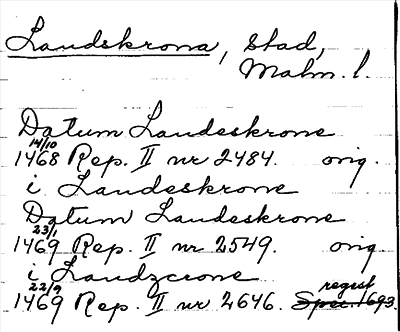 Landskrona, stad,
Malm. l.
Datum Landeskrone
14/10
1468 Rep. II nr 2484. orig.
i Landeskrone
Datum Landeskrone
23/1
1469 Rep. II nr 2549. orig
i Landzcrone
22/9 regist
1469 Rep. II nr 2646. Spec. 1693.